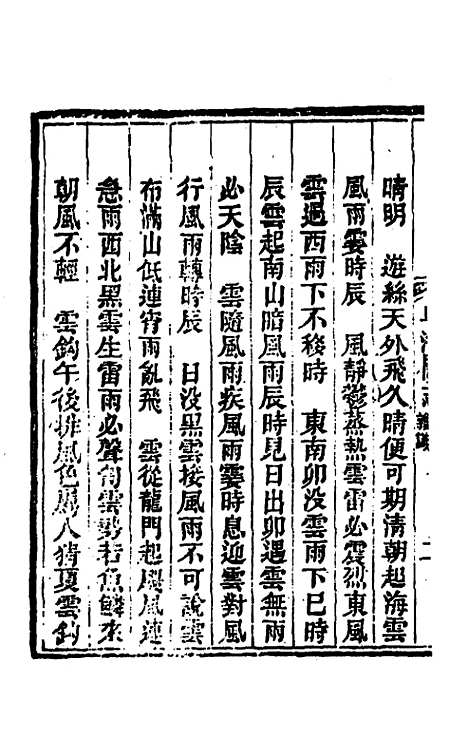 晴明　遊絲天外飛久晴便可期清朝起海雲
風雨霎時辰　風靜鬱蒸熱雲雷必震烈東風
雲過西雨下不移時　東南卯没雲雨下巳時
辰雲起南山暗風雨辰時見日出卯遇雲無雨
必天陰　雲隨風雨疾風雨霎時息迎雲對風
行風雨轉時辰　日没黑雲接風雨不可說雲
布滿山低連宵雨亂飛　雲從龍門起颶風連
急雨西北黑雲生雷雨必聲訇雲勢若魚鱗來
朝風不輕　雲鈎午後排風色屬人猜夏雲鈎